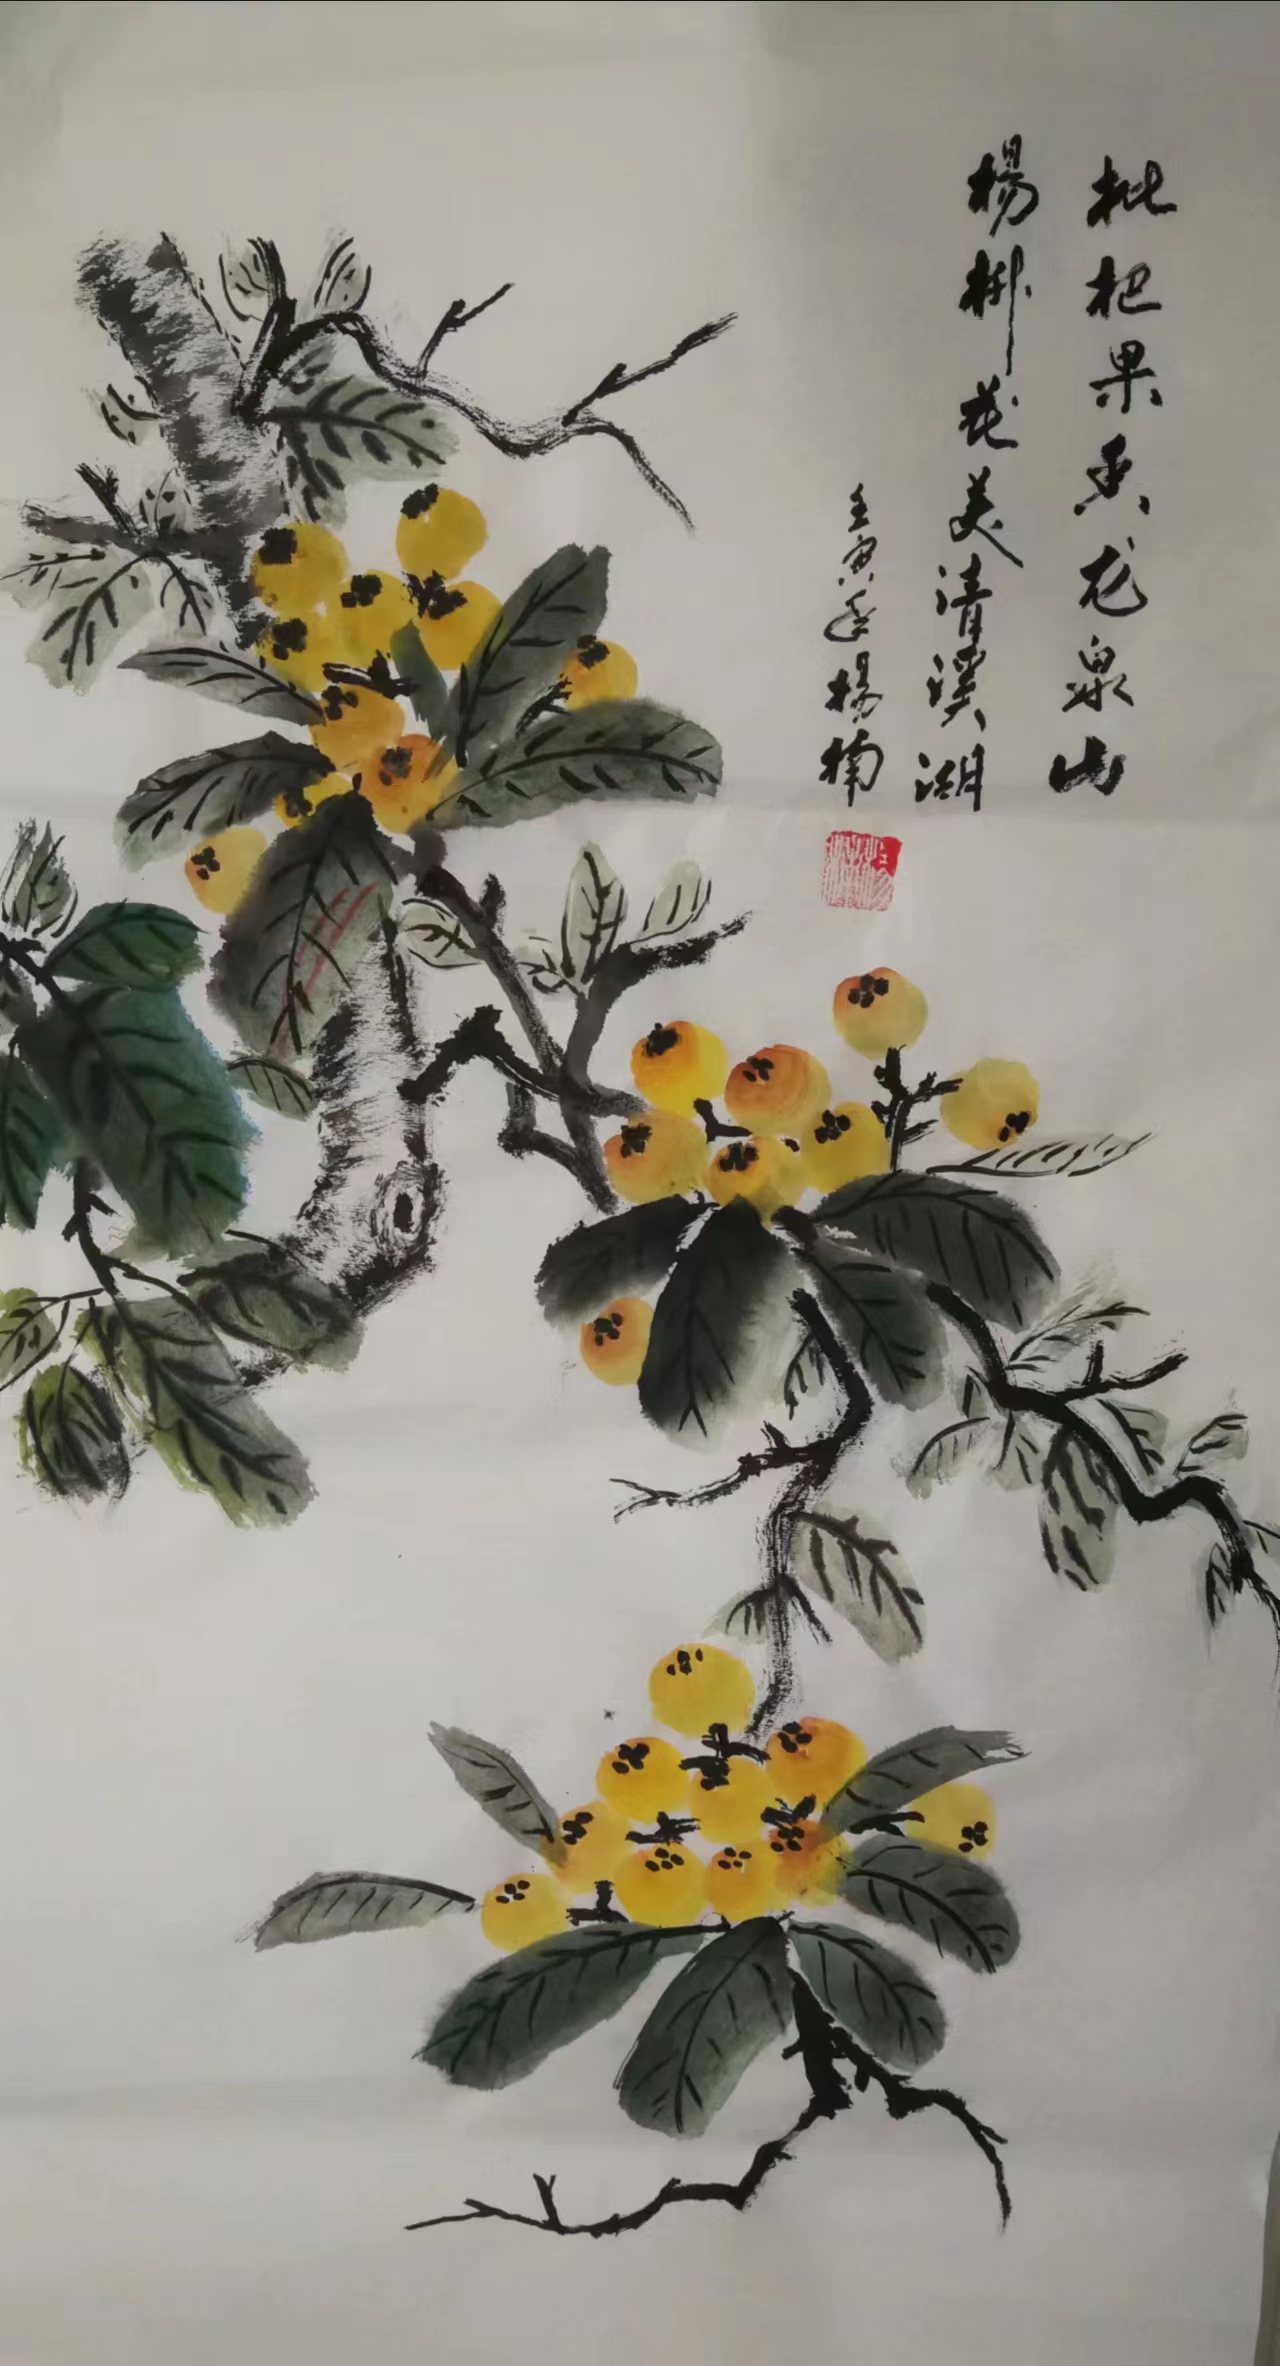 枇杷果香龙泉山
楊柳花美清溪湖
壬寅年楊楠